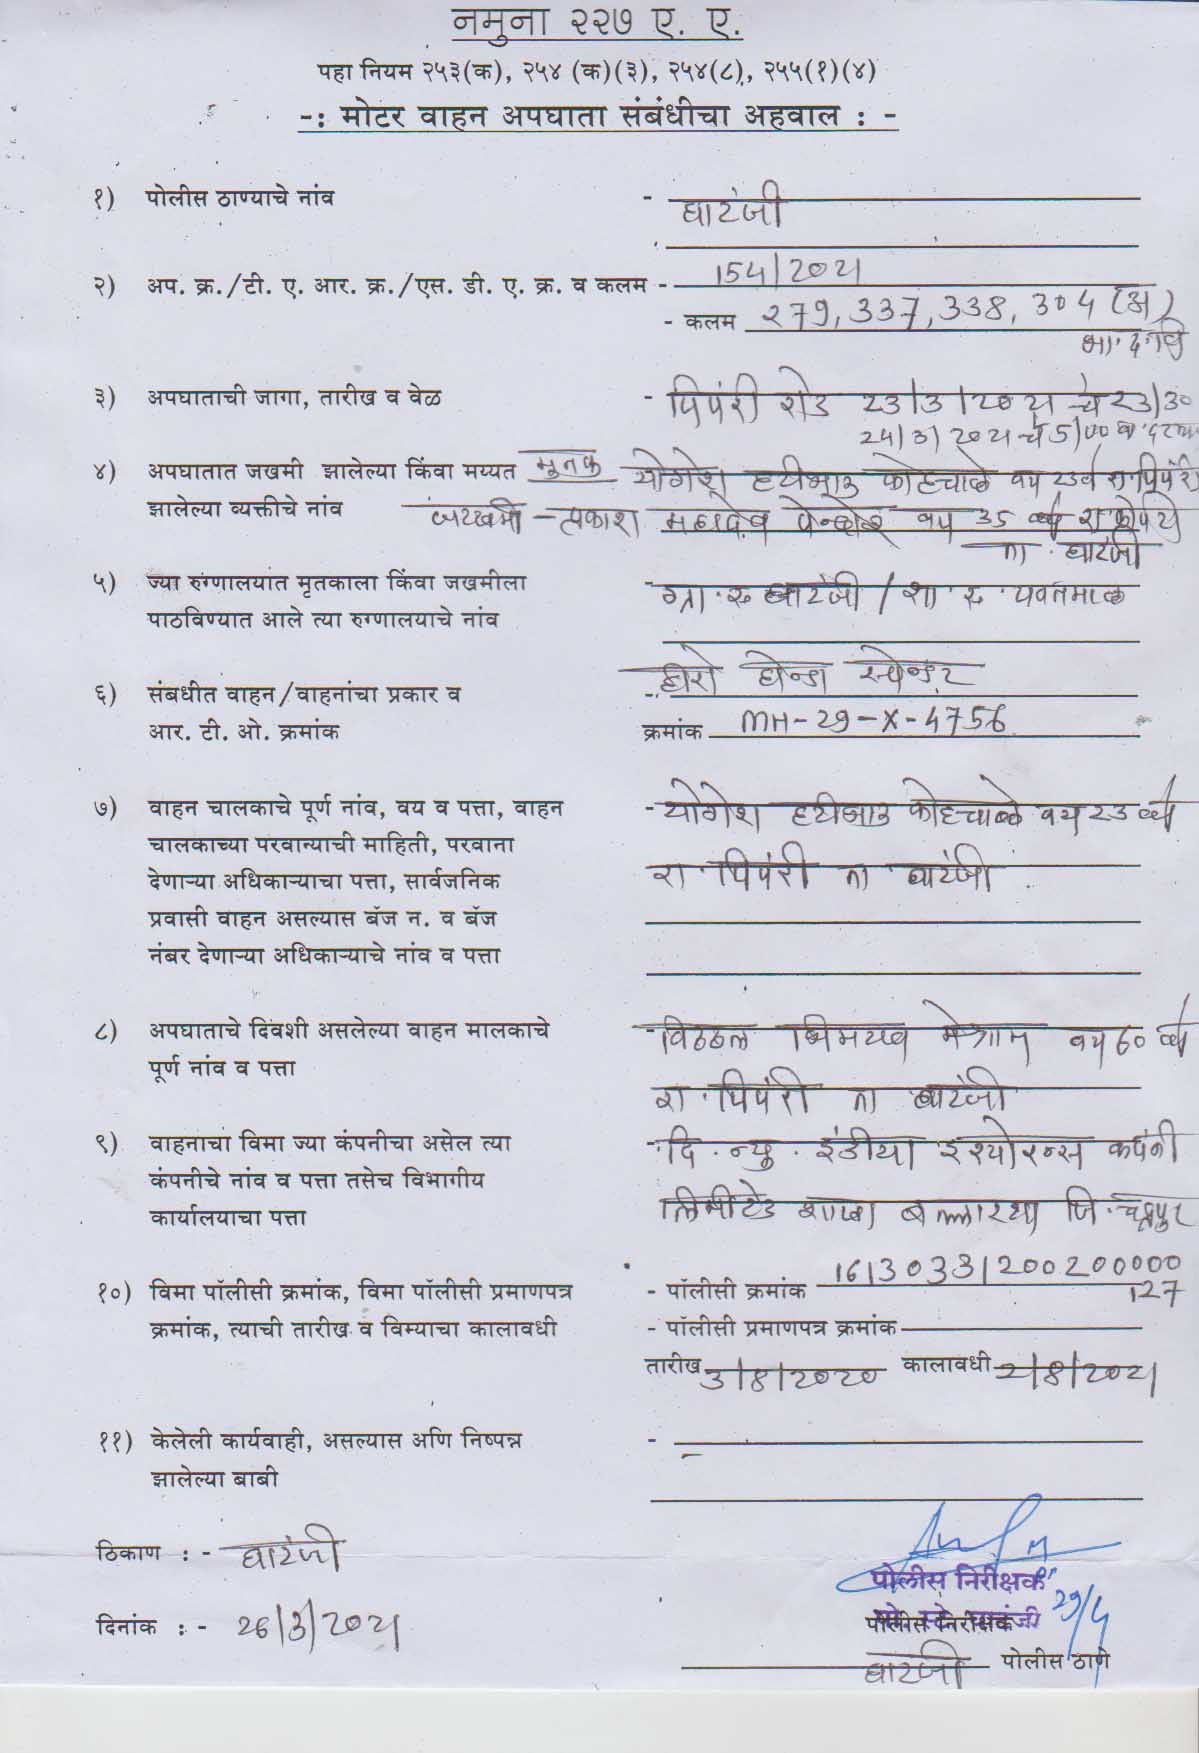 नमुना २२७ ए. ए.
पहा नियम २५३(क), २५४ (क)(३), २५४(८), २५५(१)(४)
-: मोटर वाहन अपघाता संबंधीचा अहवाल : -
१) पोलीस ठाण्याचे नांव - घाटंजी
२) अप. क्र./टी. ए. आर. क्र./एस. डी. ए. क्र. व कलम - 154/2021
- कलम 279, 337, 338, 304 (अ)
भा.द.वि
३) अपघाताची जागा, तारीख व वेळ - पिपंरी रोड 23/3/2021 चे 23/30
24/3/2021 चे 5/00 वा.
४) अपघातात जखमी झालेल्या किंवा मय्यत मृतक योगेश हरीभाउ कोहचाळे वय 23 वर्ष रा. पिपंरी
झालेल्या व्यक्तीचे नांव जख्खमी - प्रकाश महादेव वय 35 वर्ष रा
ता. घाटंजी
५) ज्या रुग्णालयात मृतकाला किंवा जखमीला - ग्रा. रु घाटंजी / शा. रु. यवतमाळ
पाठविण्यात आले त्या रुग्णालयाचे नांव
६) संबधीत वाहन/वाहनांचा प्रकार व - हीरो होन्डा स्प्लेन्डर
आर. टी. ओ. क्रमांक क्रमांक MH-29-X-4756
७) वाहन चालकाचे पूर्ण नांव, वय व पत्ता, वाहन - योगेश हरीभाउ कोहचाळे वय 23 वर्ष
चालकाच्या परवान्याची माहिती, परवाना
देणाऱ्या अधिकाऱ्याचा पत्ता, सार्वजनिक रा. पिपंरी ता घाटंजी
प्रवासी वाहन असल्यास बॅज न. व बॅज
नंबर देणाऱ्या अधिकाऱ्याचे नांव व पत्ता
८) अपघाताचे दिवशी असलेल्या वाहन मालकाचे - विठ्ठल मेश्राम वय 60 वर्ष
पूर्ण नांव व पत्ता रा. पिपंरी ता घाटंजी
९) वाहनाचा विमा ज्या कंपनीचा असेल त्या - दि. न्यु. इंडीया इंश्योरन्स कंपनी
कंपनीचे नांव व पत्ता तसेच विभागीय
कार्यालयाचा पत्ता लिमीटेड शाखा बल्लारशा जि. चंद्रपुर
१०) विमा पॉलीसी क्रमांक, विमा पॉलीसी प्रमाणपत्र - पॉलीसी क्रमांक 16130331200200000
127
क्रमांक, त्याची तारीख व विम्याचा कालावधी - पॉलीसी प्रमाणपत्र क्रमांक
तारीख 3/8/2020 कालावधी 2/8/2021
११) केलेली कार्यवाही, असल्यास अणि निष्पन्न -
झालेल्या बाबी
ठिकाण : - घाटंजी
पोलीस निरीक्षक
दिनांक : - 26/3/2021
पोलीस निरीक्षक
घाटंजी पोलीस ठाणे